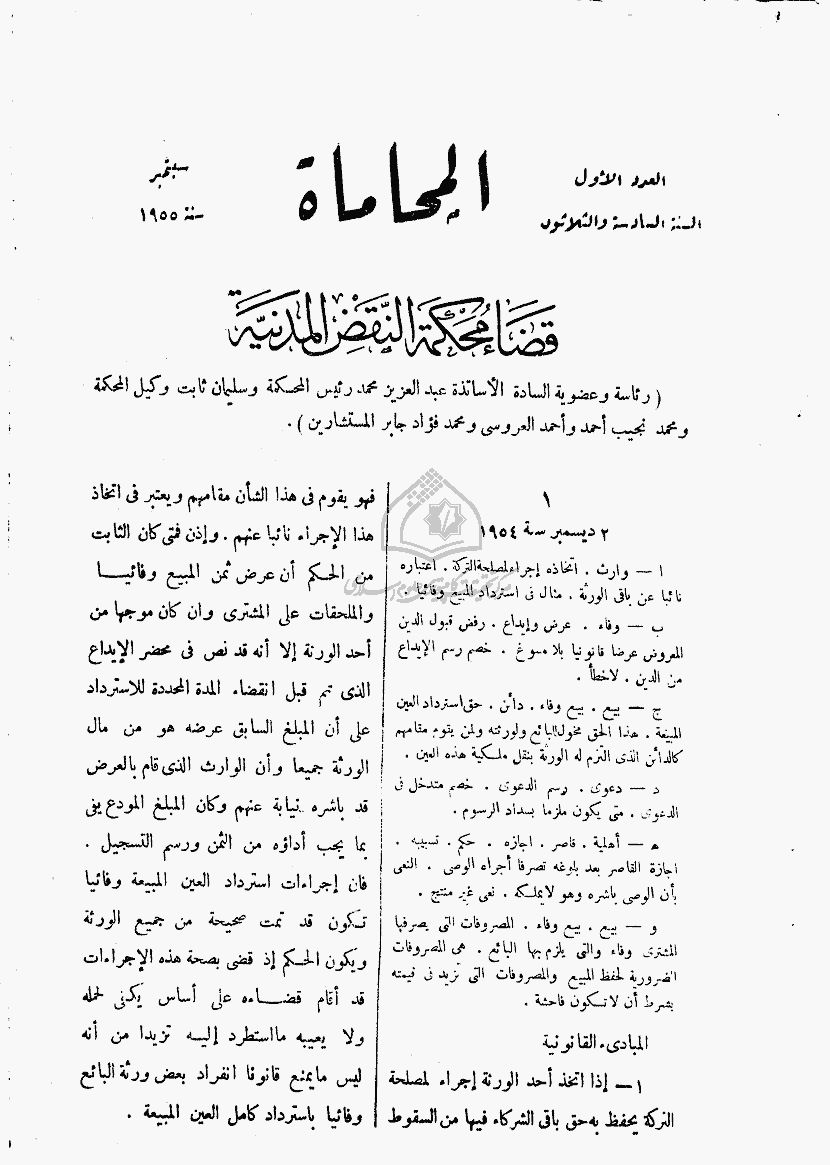 العدد الأول
السنة السادسة والثلاثون
المحاماة
سبتمبر
سنة ١٩٥٥
قضاء محكمة النقض المدنية
( رئاسة وعضوية السادة الأساتذة عبد العزيز محمد رئيس المحكمة وسليمان ثابت وكيل المحكمة
ومحمد نجيب أحمد وأحمد العروسى ومحمد فؤاد جابر المستشارين ) .
١
٢ ديسمبر سنة ١٩٥٤
ا — وارث . اتخاذه إجراء لمصلحة التركة . اعتباره
نائبا عن باقى الورثة . مثال فى استرداد المبيع وفائيا .
ب — وفاء . عرض وإيداع . رفض قبول الدين
المعروض عرضا قانونيا بلا مسوغ . خصم رسم الإيداع
من الدين . لا خطأ .
ج — بيع . بيع وفاء . دائن . حق استرداد العين
المبيعة . هذا الحق مخول للبائع ولورثته ولمن يقوم مقامهم
كالدائن الذى التزم له الورثة بنقل ملكية هذه العين .
د — دعوى . رسم الدعوى . خصم متدخل فى
الدعوى . متى يكون ملزما بسداد الرسوم .
ه — أهلية . قاصر . اجازه . حكم . تسبيبه .
اجازة القاصر بعد بلوغه تصرفا أجراه الوصى . النعى
بأن الوصى باشره وهو لايملكه . نعى غير منتج .
و — بيع . بيع وفاء . المصروفات التى يصرفها
المشترى وفاء والتى يلزم بها البائع . هى المصروفات
الضرورية لحفظ المبيع والمصروفات التى تزيد فى قيمته
بشرط أن لا تكون فاحشة .
المبادىء القانونية
١ — إذا اتخذ أحد الورثة إجراء لمصلحة
التركة يحفظ به حق باقى الشركاء فيها من السقوط
فهو يقوم فى هذا الشأن مقامهم ويعتبر فى اتخاذ
هذا الإجراء نائبا عنهم . وإذن فمتى كان الثابت
من الحكم أن عرض ثمن المبيع وفائيا
والملحقات على المشترى وان كان موجها من
أحد الورثة إلا أنه قد نص فى محضر الإيداع
الذى تم قبل انقضاء المدة المحددة للاسترداد
على أن المبلغ السابق عرضه هو من مال
الورثة جميعا وأن الوارث الذى قام بالعرض
قد باشره نيابة عنهم وكان المبلغ المودع يفى
بما يجب أداؤه من الثمن ورسم التسجيل .
فان إجراءات استرداد العين المبيعة وفائيا
تكون قد تمت صحيحة من جميع الورثة
ويكون الحكم إذ قضى بصحة هذه الإجراءات
قد أقام قضاءه على أساس يكفى لحمله
ولا يعيبه مااستطرد إليه تزيدا من أنه
ليس مايمنع قانونا انفراد بعض ورثة البائع
وفائيا باسترداد كامل العين المبيعة .